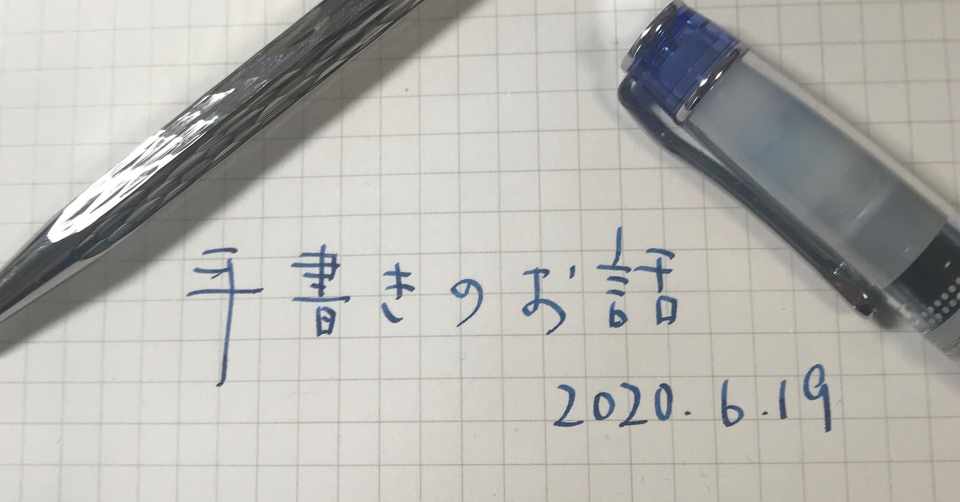 手書きのお話
2020.6.19